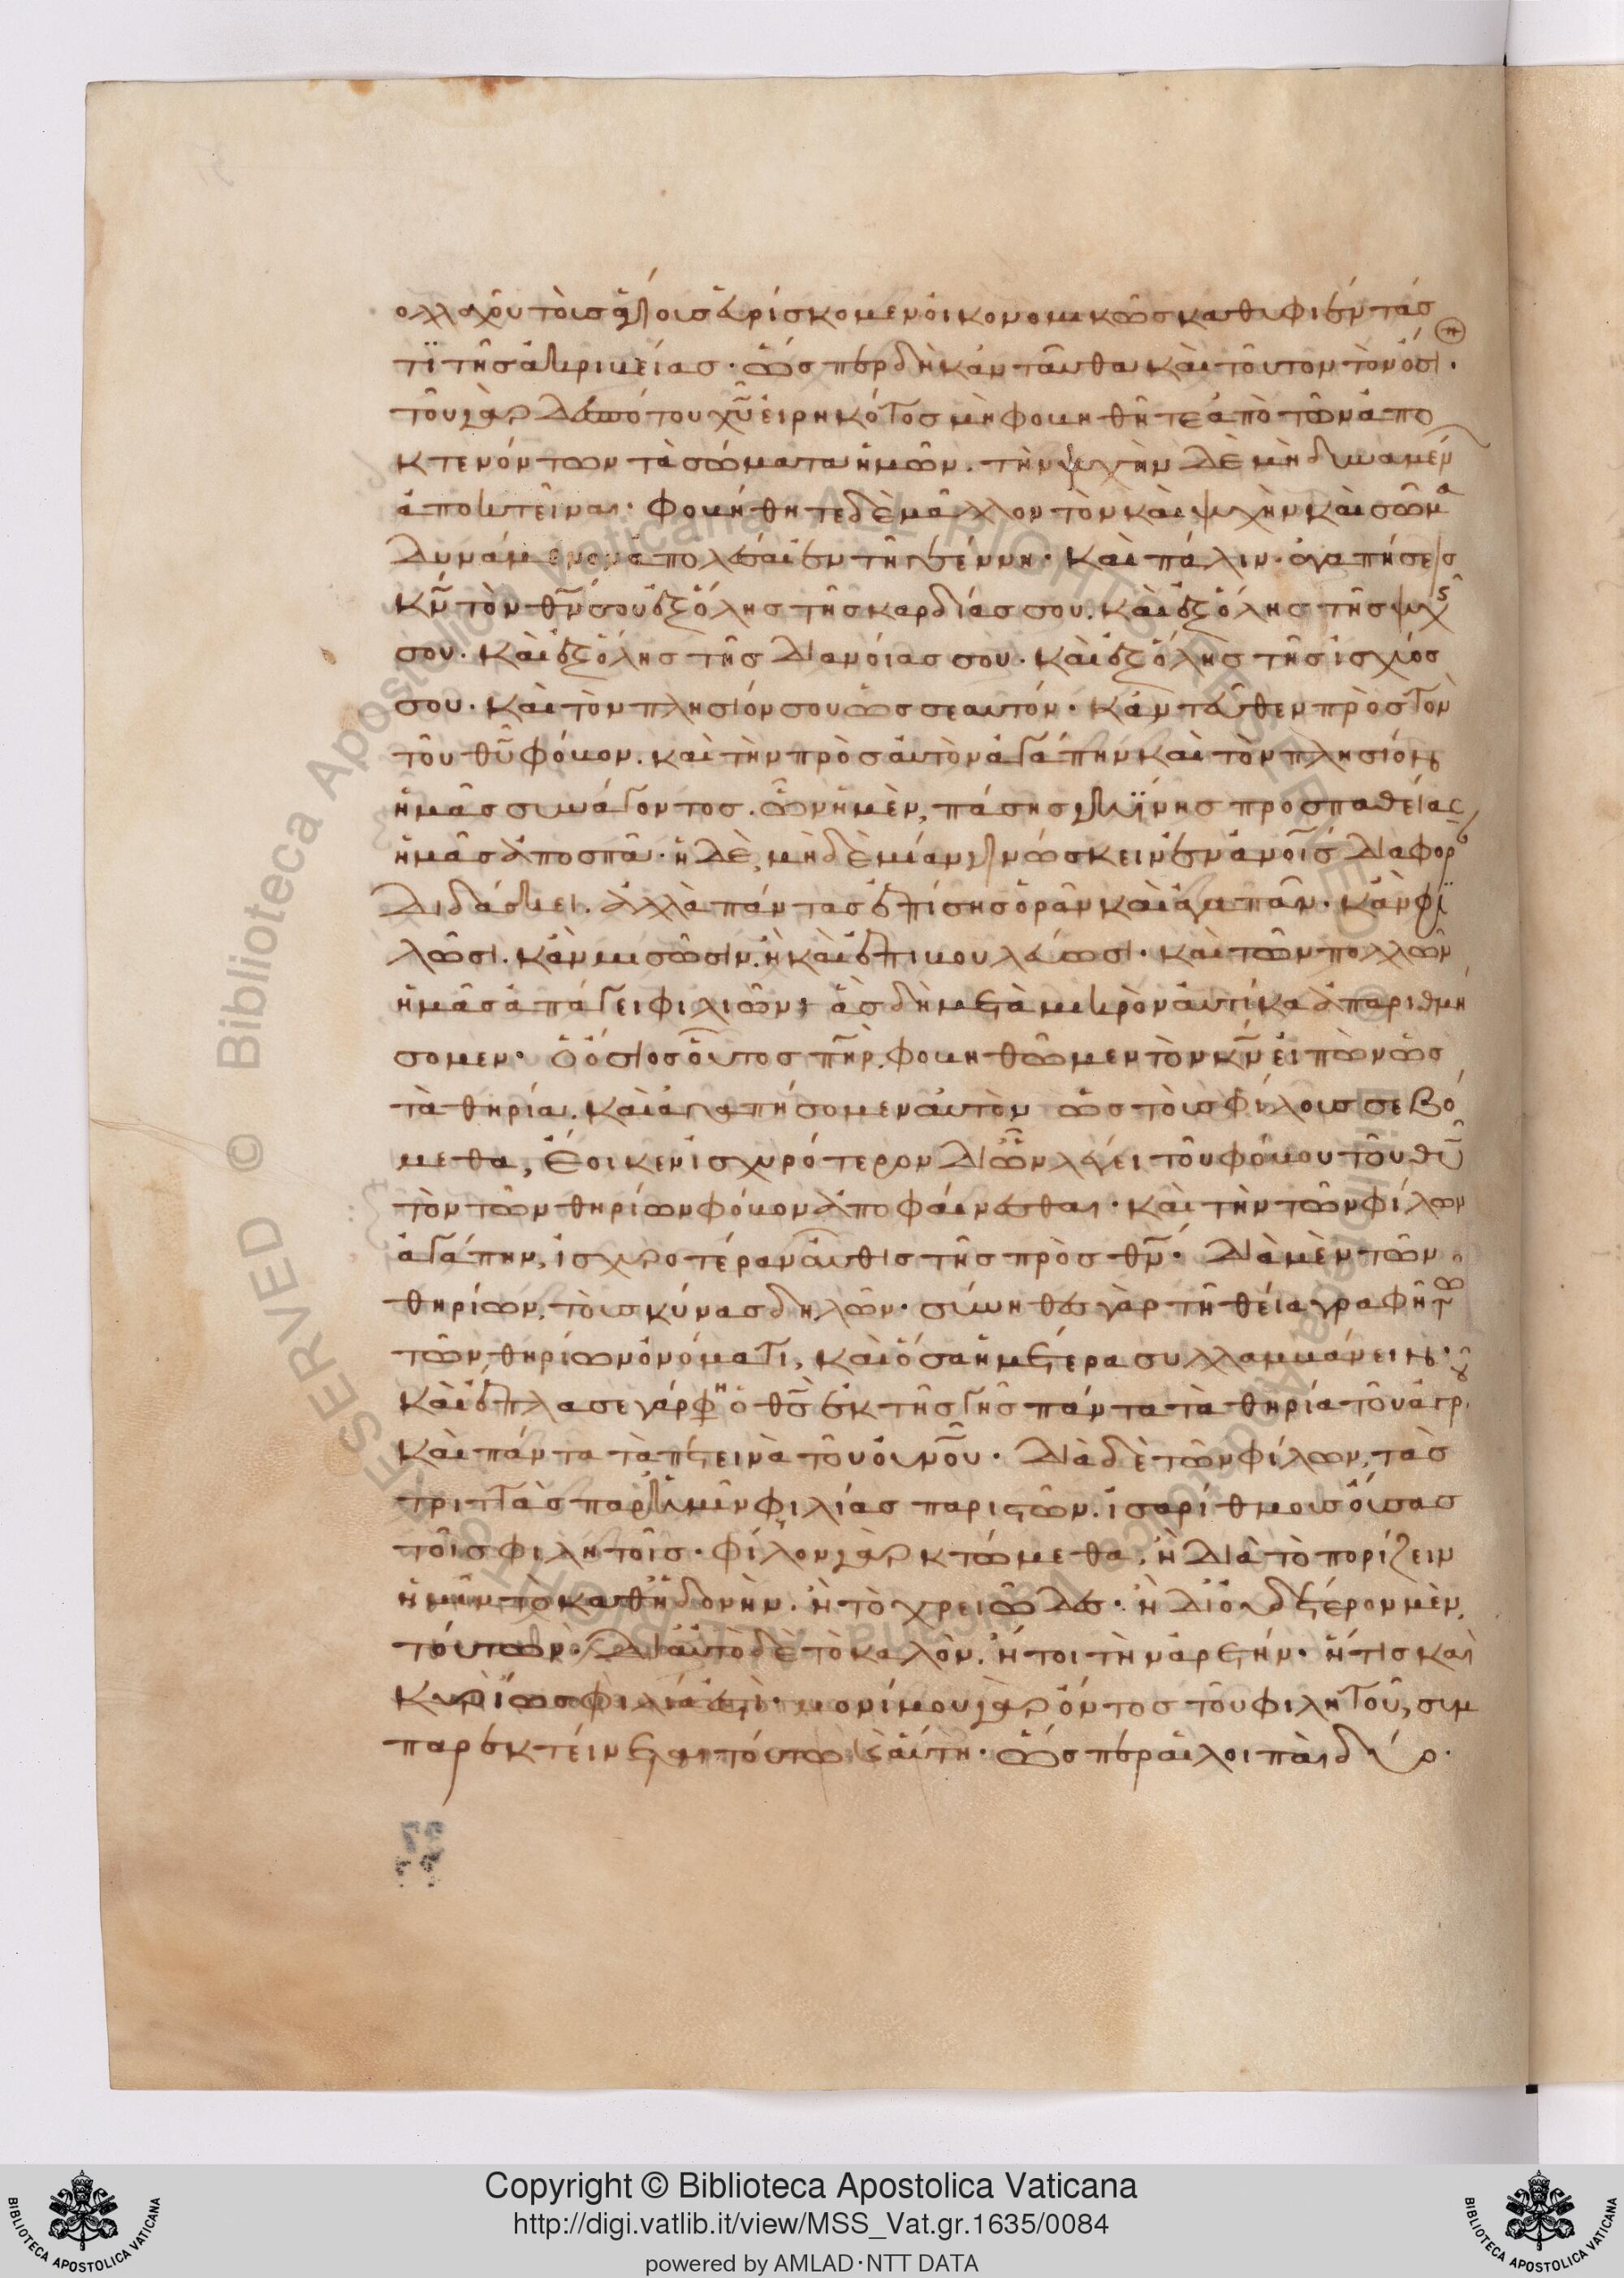 ολλαχοῦ τοῖς ἁγίοις εὑρίσκομεν οἰκονομικῶς καθυφιέντας
τὶ τῆς ἀκριβείας· ὥσπερ δὴ κἀνταῦθα καὶ τοῦτον τὸν ὅσι·
τοῦ γὰρ δεσπότου χυ εἰρηκότος μὴ φοβηθῆτε ἀπὸ τῶν ἀπο
κτενόντων τὰ σώματα ἡμῶν. τὴν ψυχὴν δὲ μὴ δυναμέν
ἀποκτεῖναι· φοβήθητε δὲ μᾶλλον τὸν καὶ ψυχὴν καὶ σῶμα
δυνάμενον ἀπολέσαι ἐν τῇ γεέννῃ· καὶ πάλιν· ἀγαπήσεις
κν τὸν θν σου ἐξ ὅλης τῆς καρδίας σου. καὶ ἐξ ὅλης τῆς ψυχῆς
σου· καὶ ἐξ ὅλης τῆς διανοίας σου· καὶ ἐξ ὅλης τῆς ἰσχύος
σου· καὶ τὸν πλησίον σου ὡς σεαυτόν· κἀντεῦθεν πρὸς τὸν
τοῦ θυ φόβον. καὶ τὴν πρὸς αὐτὸν ἀγάπην καὶ τὸν πλησίον
ἡμᾶς συνάγοντος. ὧν ἡ μὲν, πάσης γηΐνης προσπαθείας
ἡμᾶς ἀποσπᾶ· ἡ δὲ, μηδεμίαν γινώσκειν ἐν ἀνοις διαφορ
διδάσκει. ἀλλὰ πάντας ἐπίσης ὁρᾶν καὶ ἀγαπᾶν· κἂν φι
λῶσι. κἂν μισῶσιν. ἢ καὶ ἐπιβουλεύωσι· καὶ τῶν πολλῶν
ἡμᾶς ἀπάγει φιλιῶν· ἃς δὴ μετὰ μικρὸν αὐτίκα ἀπαριθμη
σομεν· ὁ ὅσιος οὗτος πηρ. φοβηθῶμεν τὸν κν εἰπὼν ὡς
τὰ θηρία. καὶ ἀγαπήσομεν αὐτὸν ὡς τοῖς φίλοις σεβό
μεθα, ἔοικεν ἰσχυρότερον δι' ὧν λέγει τοῦ φόβου τοῦ θυ
τὸν τῶν θηρίων φόβον ἀποφαίνεσθαι· καὶ τὴν τῶν φίλων
ἀγάπην, ἰσχυροτέραν αὖθις τῆς πρὸς θν· διὰ μὲν τῶν
θηρίων, τοὺς κύνας δηλῶν· σύνηθες γὰρ τῇ θείᾳ γραφῇ τῷ
τῶν θηρίων ὀνόματι, καὶ ὅσα ἡμέτερα συλλαμβάνειν·
καὶ ἔπλασε γάρ φη ὁ θς ἐκ τῆς γῆς πάντα τὰ θηρία τοῦ ἀγρ
καὶ πάντα τὰ πετεινὰ τοῦ οὐνοῦ· διὰ δὲ τῶν φίλων, τὰς
τριττὰς παρ' ἡμῖν φιλίας παριστῶν. ἰσαρίθμους οὔσας
τοῖς φιλητοῖς· φίλον γὰρ κτώμεθα, ἢ διὰ τὸ πορίζειν
ἡμῖν τὸ καθ' ἡδονὴν. ἢ τὸ χρειῶδες· ἢ δι' οὐδέτερον μὲν
τούτων. δι' αὐτὸ δὲ τὸ καλὸν. ἤτοι τὴν ἀρετήν· ἥτις καὶ
κυρίως φιλία ἐστὶ· μονίμου γὰρ ὄντος τοῦ φιλητοῦ, συμ
παρεκτείνεται τούτω καὶ αὐτὴ· ὥσπερ αἱ λοιπαὶ δύο·
Copyright © Biblioteca Apostolica Vaticana
http://digi.vatlib.it/view/MSS_Vat.gr.1635/0084
powered by AMLAD·NTT DATA